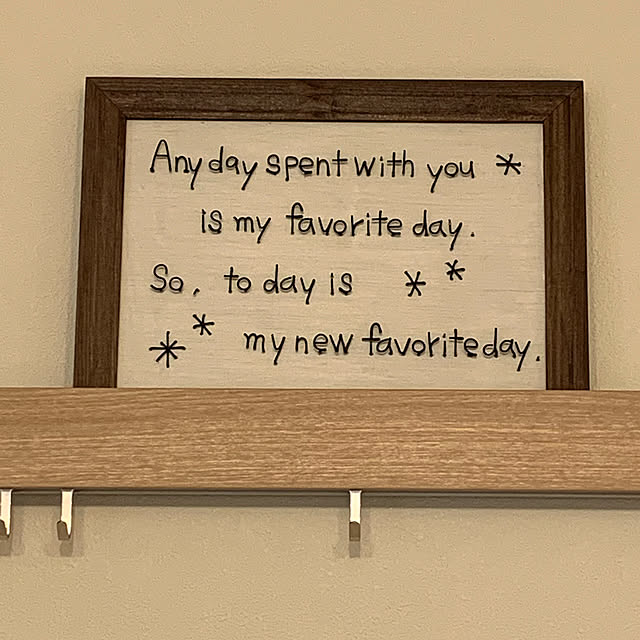 Any day spent with you *
is my favorite day.
So, to day is * *
* * my new favorite day.